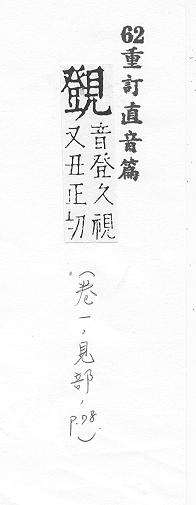 62重訂直音篇
覴
音登久視
又丑正切
(卷一，見部，p.98.)